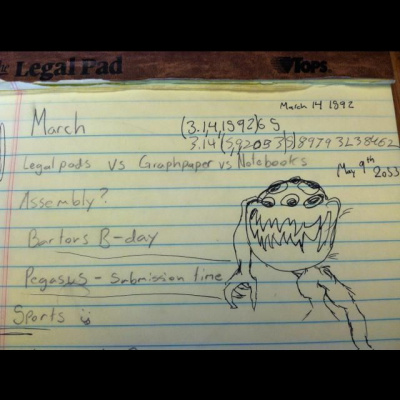 Legal Pad TOPS
March 14 1892
March (3.1,4,1592)65
Legal pads vs Graphpaper vs Notebooks
May 9th 2033
Assembly?
Bartors B-day
Pegasus - submission time
Sports